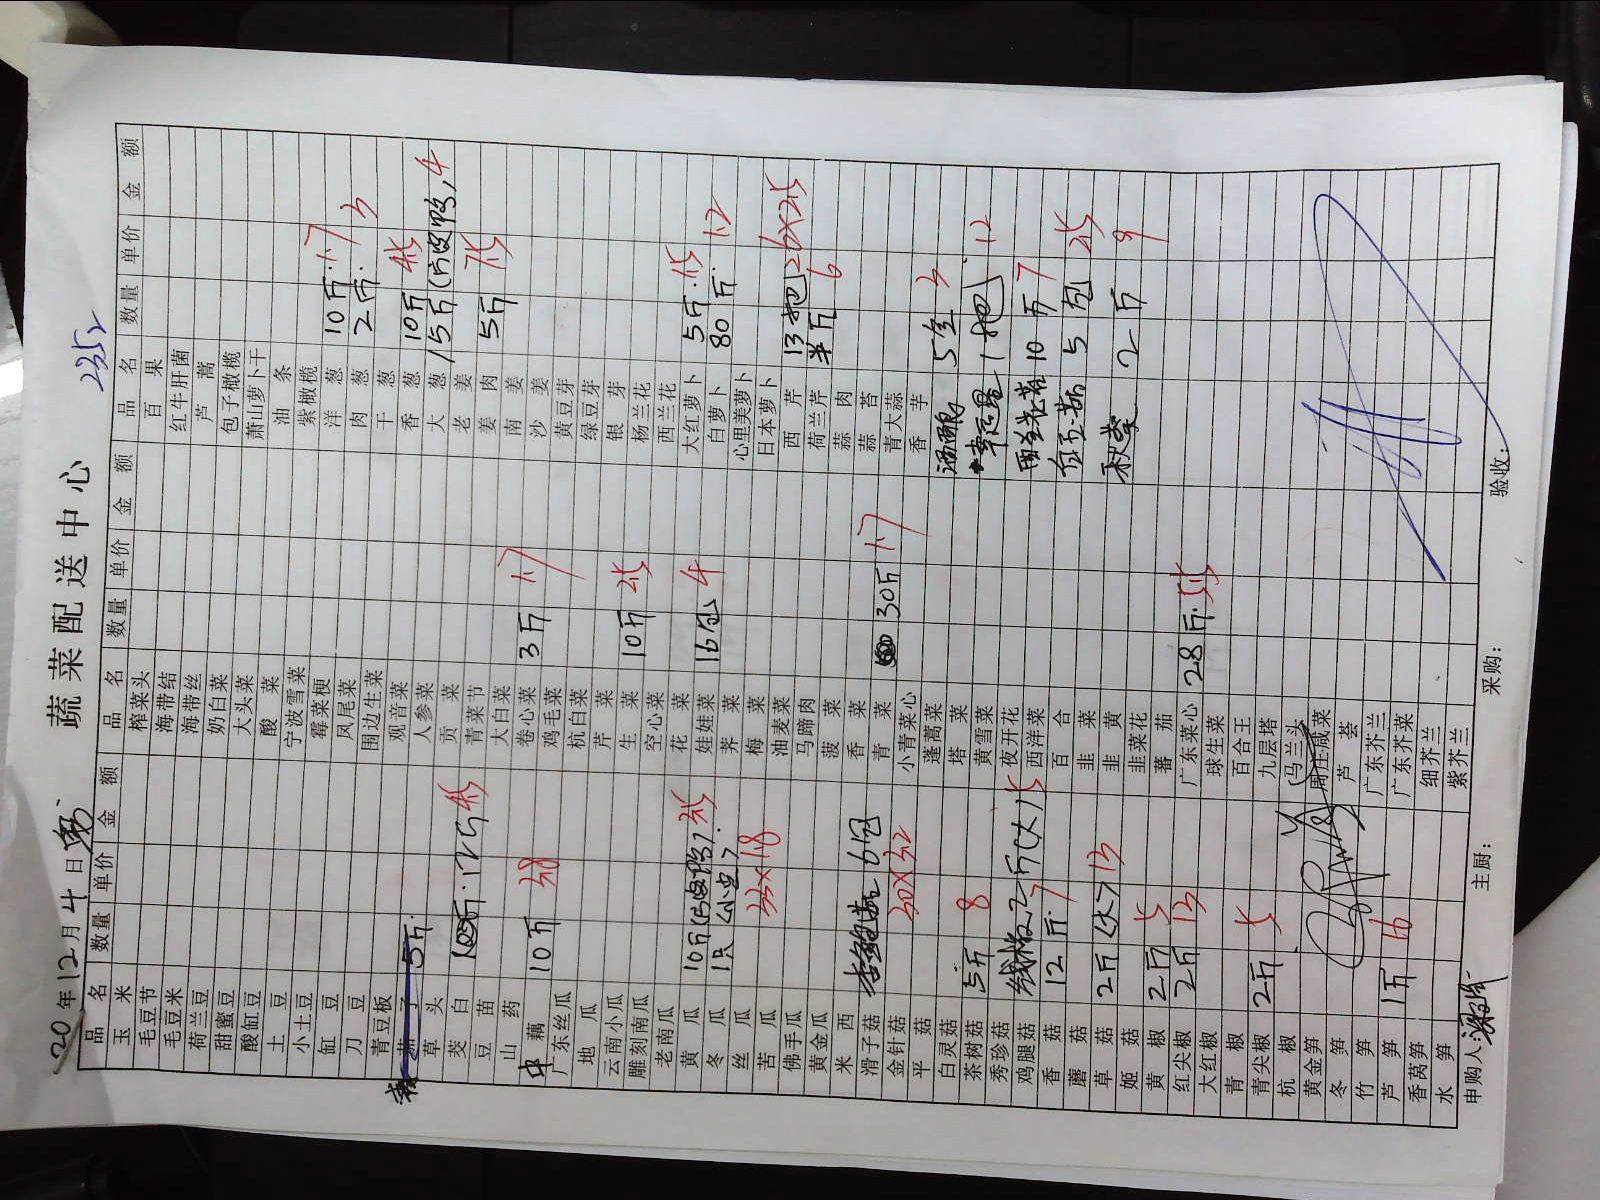 蔬菜配送中心
2352
20年12月4日
品名 数量 单价 金额 品名 数量 单价 金额 品名 数量 单价 金额
玉米 榨菜头 百果
毛豆节 海带结 红牛肝菌
毛豆米 海带丝 芦蒿
荷兰豆 奶白菜 包子橄榄
甜蜜豆 大头菜 萧山萝卜干
酸缸豆 酸菜 油条
土豆 宁波雪菜 紫橄榄
小土豆 霉菜梗 洋葱 10斤 1.7
缸豆 凤尾菜 肉葱 2斤 3
刀豆 围边生菜 干葱
青豆板 观音菜 香葱 10斤 4.5
茄子 5斤 人参菜 大葱 15斤(片皮鸭) 4
草头 贡菜 老姜
茭白 12斤 4.5 青菜节 姜肉 5斤 7.5
豆苗 大白菜 南姜
山药 卷心菜 3斤 1.7 沙姜
中藕 10斤 3.8 鸡毛菜 黄豆芽
广东丝瓜 杭白菜 绿豆芽
地瓜 芹菜 银芽
云南小瓜 生菜 10斤 2.5 杨兰花
雕刻南瓜 空心菜 西兰花
老南瓜 花菜 大红萝卜 5斤 1.5
黄瓜 10斤(片皮鸭) 3.5 娃娃菜 16包 4 白萝卜 80斤 1.2
冬瓜 1只 荠菜 心里美萝卜
丝瓜 33×1.8 梅菜 日本萝卜
苦瓜 油麦菜 西芹 13把 26×2.5
佛手瓜 马蹄肉 荷兰芹 半斤 6
黄金瓜 菠菜 蒜肉
米西 香菜 蒜苔
滑子菇 6包 青菜 30斤 1.7 青大蒜
金针菇 30×3.2 小青菜心 香芋
平菇 蓬蒿菜 酒酿 5盒 3
白灵菇 塔菜
茶树菇 5斤 8 黄雪菜 1把 12
秀珍菇 夜开花
鸡腿菇 线椒2斤(大) 7.5 西洋菜 10斤 7
香菇 12斤 7 百合
蘑菇 韭菜 5包 2.5
草菇 2斤(大) 13 韭黄
姬菇 韭菜花 秋葵 2斤 9
黄椒 2斤 5 蕃茄
红尖椒 2斤 13 广东菜心 28斤 5.5
大红椒 球生菜
青椒 百合王
青尖椒 2斤 5 九层塔
杭椒 马兰头
黄金笋 周庄咸菜
冬笋 芦荟
竹笋 广东芥兰
芦笋 1斤 16 广东芥菜
香莴笋 细芥兰
水笋 紫芥兰
申购人 主厨: 采购: 验收: